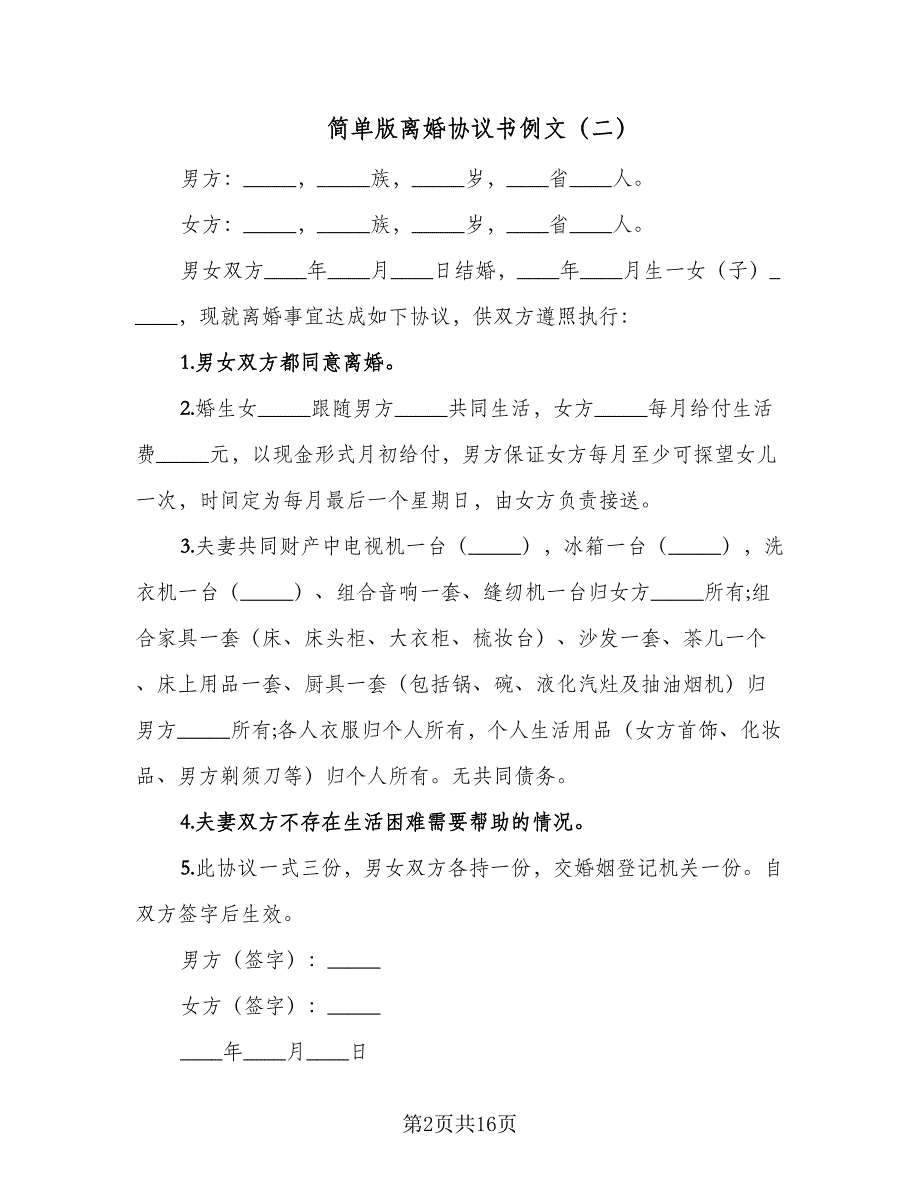 简单版离婚协议书例文（二）
男方：_____，_____族，_____岁，____省____人。
女方：_____，_____族，_____岁，____省____人。
男女双方____年____月____日结婚，____年____月生一女（子）_
____，现就离婚事宜达成如下协议，供双方遵照执行：
1.男女双方都同意离婚。
2.婚生女_____跟随男方_____共同生活，女方_____每月给付生活
费_____元，以现金形式月初给付，男方保证女方每月至少可探望女儿
一次，时间定为每月最后一个星期日，由女方负责接送。
3.夫妻共同财产中电视机一台（_____），冰箱一台（_____），洗
衣机一台（_____）、组合音响一套、缝纫机一台归女方_____所有;组
合家具一套（床、床头柜、大衣柜、梳妆台）、沙发一套、茶几一个
、床上用品一套、厨具一套（包括锅、碗、液化汽灶及抽油烟机）归
男方_____所有;各人衣服归个人所有，个人生活用品（女方首饰、化妆
品、男方剃须刀等）归个人所有。无共同债务。
4.夫妻双方不存在生活困难需要帮助的情况。
5.此协议一式三份，男女双方各持一份，交婚姻登记机关一份。自
双方签字后生效。
男方（签字）：_____
女方（签字）：_____
____年____月____日
第2页共16页